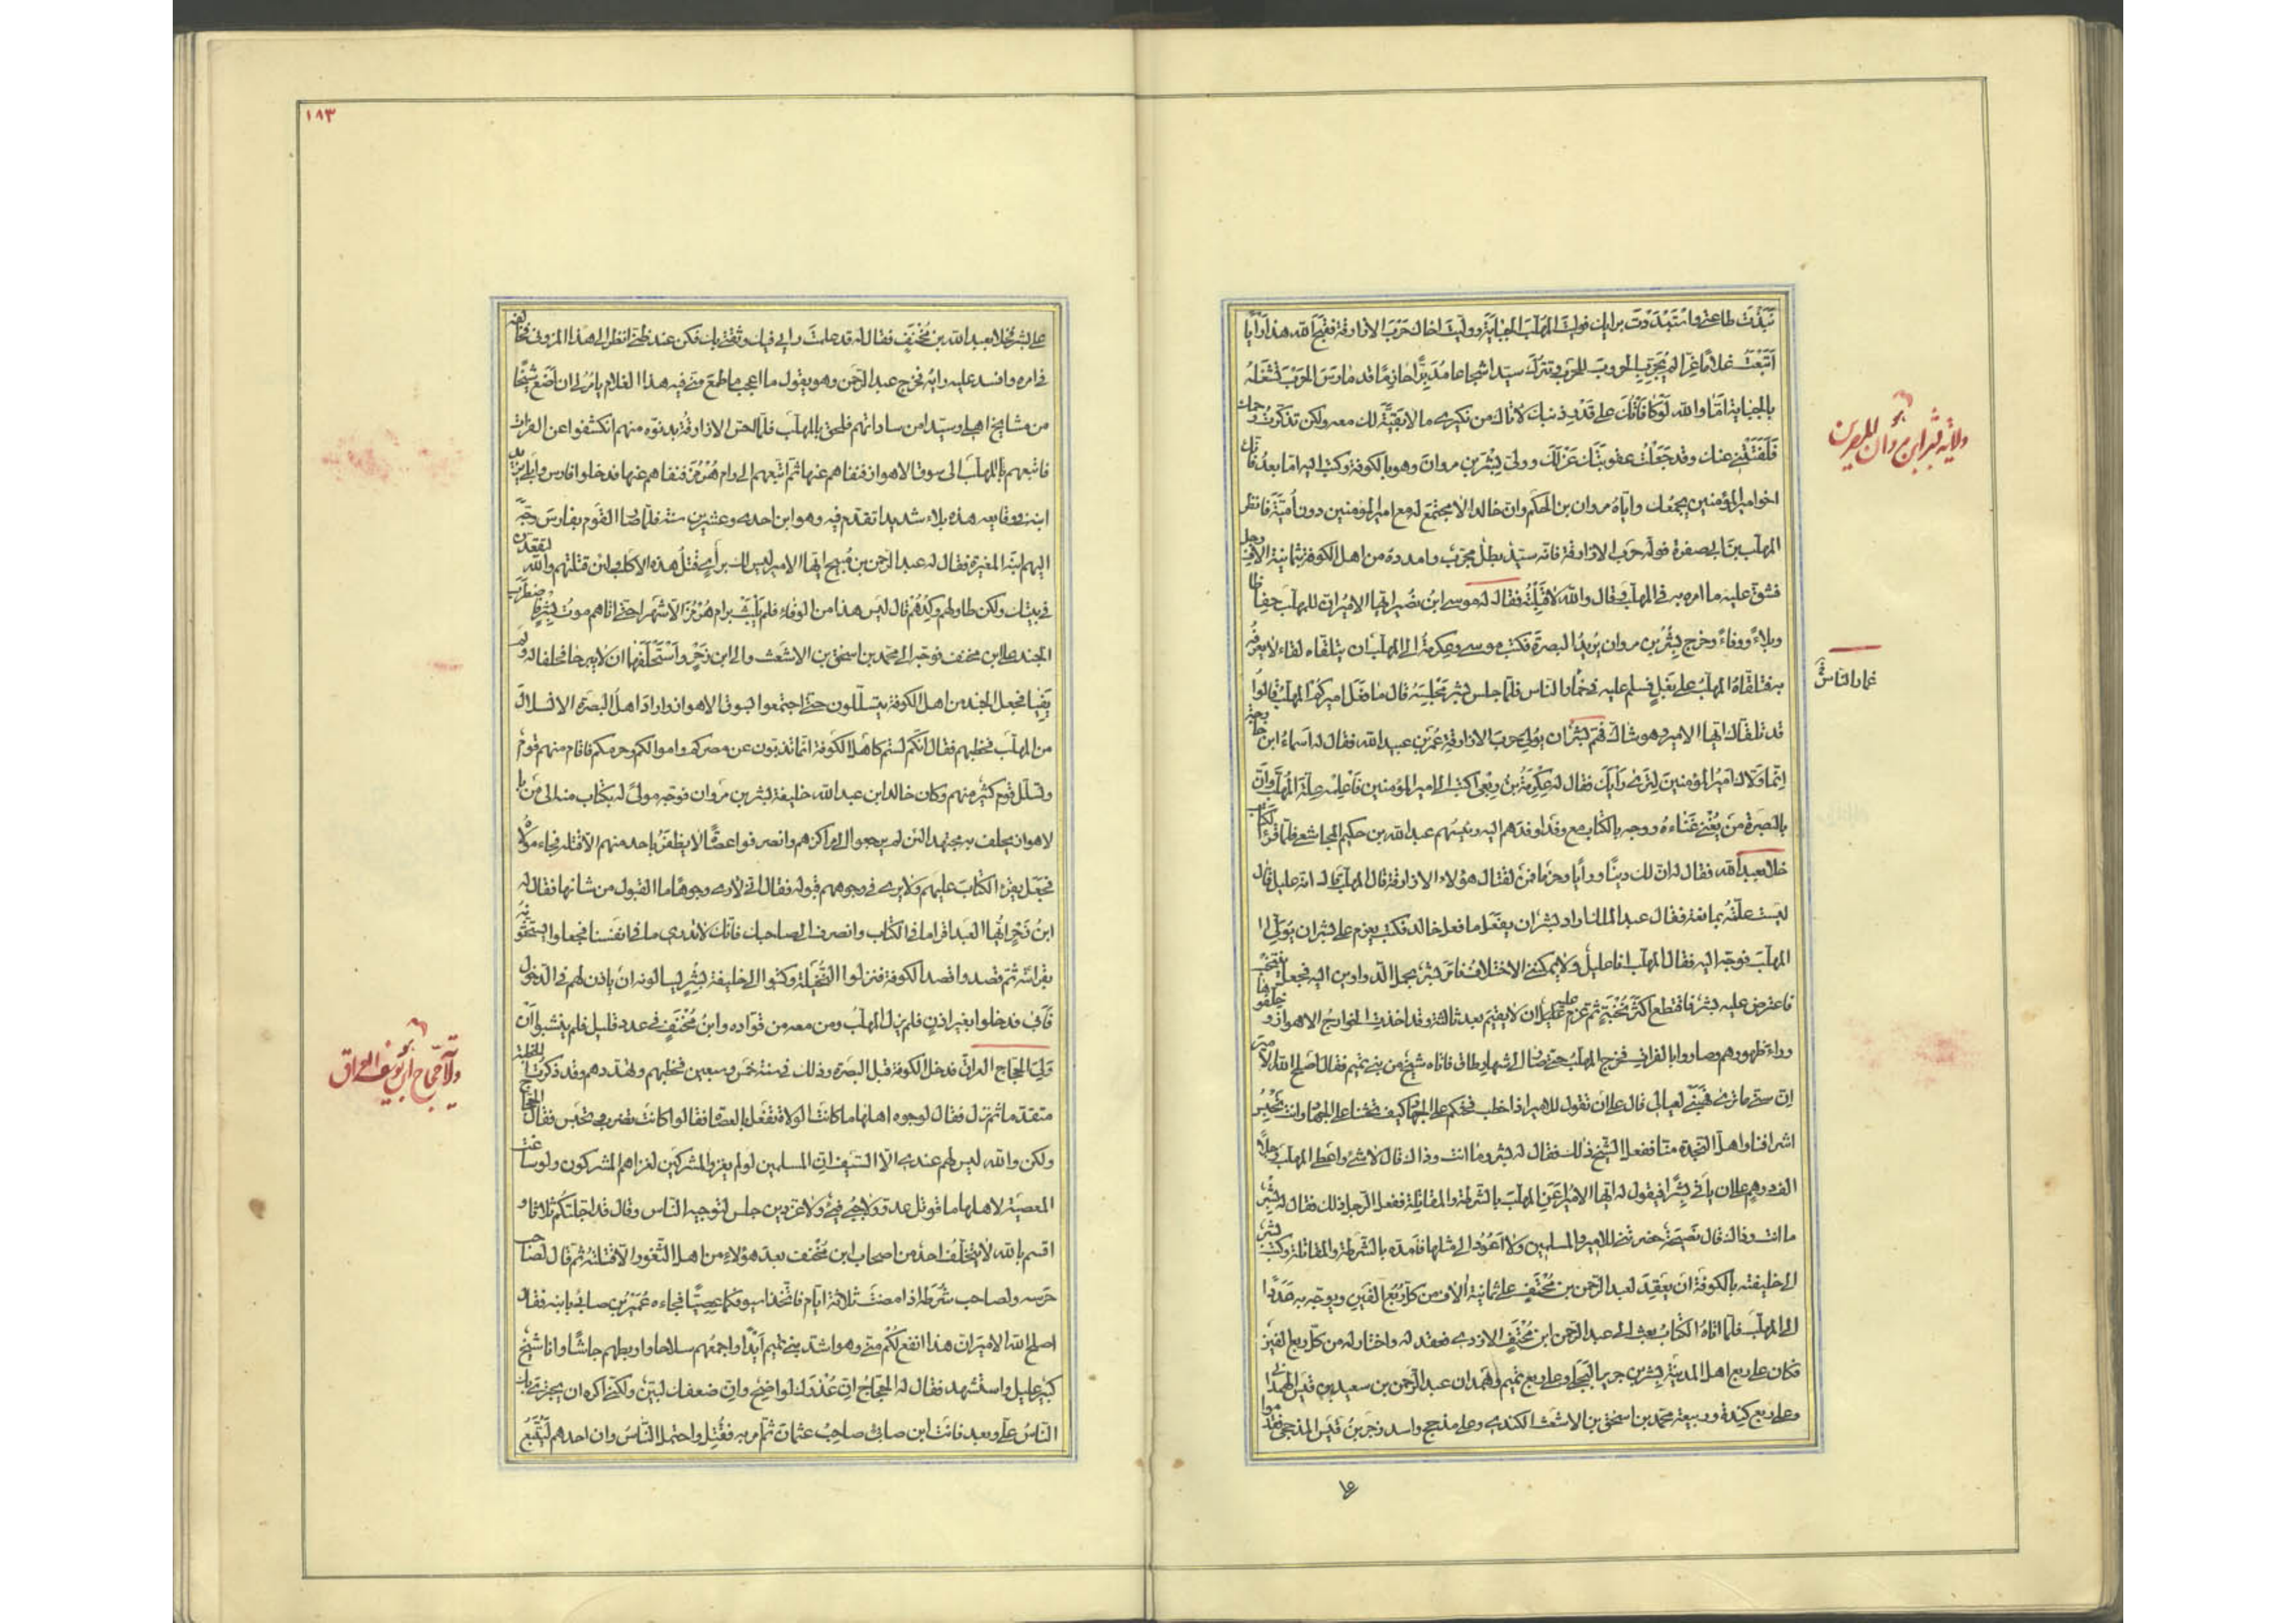 نَبَذْتَ طاعتي واسْتَبْدَدْتَ برايك فوليتَ المهلّبَ الجبايةَ ووليتَ اخاك حَرْبَ الازارقة فقبّح الله هذا رأيًا
اَتَبْعَثُ غلامًا غِرًّا لم يُجَرِّبِ الحروبَ للحرب وتترك سيّدًا شجاعا مُدَبِّرًا حازمًا قد مارَسَ الحربَ تَشْغَلُهُ
بالجباية امَا والله لَوْ كافَأْتُكَ على قَدْرِ ذنبك لاَتاك من نكيري ما لا بَقيَّةَ لك معه ولكن تذكّرتُ رحمك
فَلَفَتَتْني عنك وقد جَعَلْتُ عقوبتك عَزْلَكَ وولّى بِشْرَ بن مروان وهو بالكوفة وكتب اليه امّا بعدُ فانّك
اخو امير المؤمنين يجمعُك وايّاهُ مروان بن الحكَم وانّ خالدا لا مجتمَعَ له مع امير المؤمنين دون اُمَيَّةَ فانظر
المهلّبَ بن ابى صفرة فولّه حرْبَ الازارقة فانّه سيّدٌ بطلٌ مجرّبٌ وامدده من اهل الكوفة بثمانية الاف رجل
فشقّ عليه ما امره به فى المهلّب وقال والله لاَقتُلَنَّهُ فقال له موسى ابن نُصَير ايّها الاميرُ انّ للمهلّب حِفاظا
وبلاءً ووفاءً وخرج بِشْرُ بن مروان يُريدُ البصرةَ فكتب موسى وعِكرمةُ الى المهلّب ان يتلقّاه لقاءً لا يعرفُه
به فتلقّاهُ المهلّبُ على بَغلٍ فسلم عليه فى خُمار الناس فلمّا جلس بشر مجلسَهُ قال ما فعَل اميركُم المهلّبُ قالوا
قد تلقّاك ايّها الامير وهو شاكٍ فهَمّ بِشْرٌ ان يُولِّي حرب الازارقةِ عُمَرَ بن عبيد الله فقال له اسماءُ ابن خارجة
اِنّما ولاّك اَميرُ المؤمنين لِتَرى رَأيَكَ فقال له عِكرمةُ بن رِبْعِي اكتب الى امير المؤمنين فَأعْلِمه عِلّةَ المُهلّب وانّ
بالبَصرة مَن يُغْني غَناءَهُ ووجه بالكتاب مع وفدٍ اوفدَهم اليه ورئيسُهم عبد الله بن حكيم المجاشعى فلمّا قرأ الكتاب
خلا بعبد الله فقال له انّ لك دِينًا ورأيًا وحزمًا فمَن لقتال هؤلاء الازارقة قال المهلّب قال انّه عليل قال
ليست علّتُه بمانعة فقال عبد الملك اراد بشر ان يفعَل ما فعل خالد فكتب يعزم على بشر ان يُولّي
المهلّبَ فوجّه اليه فقال المهلّب انا عليلٌ ولا يمكنني الاختلافُ فامَر بشر بحمل الدواوين اليه فجعل ينتخب
فاعترض عليه بشر فاقتطع اَكثَرَ نُخْبَتِه ثم عزم عليه ان لا يقيم بعد ثالثة وقد اخذت الخوارج الاهواز وخلّفوها
وراء ظهورهم وصاروا بالفرات فخرج المهلّب حتى صار الى شهار طاق فاتاه شيخٌ من بني تميم فقال اَصلح الله الامير
انّ سنّي ما ترى فهَبْني لعيالي قال على ان تقول للامير اذا خطب فحثّكم على الجهاد كيف تحثّنا على الجهاد وانت تحبِسُ
اشرافنا واهلَ النّجدة منّا ففعل الشّيخ ذلك فقال له بشر وما انت وذاك قال لا شيءَ واَعطى المهلّب رجلاً
الفَ درهم على ان يأتي بِشْرًا فيقول له ايّها الاميرُ اَعِنِ المهلّبَ بالشرطة والمقاتلة ففعل الرجل ذلك فقال له بشر
ما انت وذاك قال نَصيحةٌ حضرتني للامير والمسلمين ولا اَعُودُ الى مثلها فامدّه بالشرطة والمقاتلة وكتب بشر
الى خليفته بالكوفة ان يَعقِدَ لعبد الرحمن بن مُخْنَفٍ على ثمانية اٰلاف من كلّ رُبع الفَين ويوجّه به مَدَدًا
الى المهلّب فلمّا اتاهُ الكتابُ بعث الى عبد الرحمن ابن مُخْنَفٍ الازدي فعقد له واختار له من كلّ ربع الفين
فكان على ربع اهل المدينة بِشر بن جرير البَجَلي وعلى ربع تميم وهَمْدان عبد الرحمن بن سعيد بن قيس الهمداني
وعلى ربع كِندة وربيعة محمّد بن اسحٰق بن الاشعث الكندي وعلى مذحج واسد زحرُ بنُ قيس المذحجي فقدموا
ولاية بشر ابن مروان للبصرين
خمار الناس
على بشر فخلا بعبد الله بن مُخْنَفٍ فقال له قد علمتَ رأيي فيك وثقتي بك فكن عند ظنّي انظر الى هذا المزوني فخالفه
فى امره وافسد عليه رايه فخرج عبد الرحمن وهو يقول ما اعجب ما طمعَ منّي فيه هذا الغلام يأمُرُني ان اَضَعَ شيخًا
من مشايخ اهلي وسيّدا من ساداتهم فلحق بالمهلّب فلمّا احسّ الازارقةُ بدنوّه منهم انكشفوا عن الفرات
فاتبعهم المهلّبُ الى سوق الاهواز فنفاهم عنها ثم اتبعهم الى رام هُرْمُزَ فنفاهم عنها فدخلوا فارس وابلى يزيد
ابنه فى وقايعه هذه بلاءً شديدا تقدّم فيه وهو ابن احدى وعشرين سنة فلمّا صار القوم بفارس وجّه
اليهم ابنَه المغيرة فقال له عبد الرحمن بن صُبَيح ايّها الامير ليس لك برأيٍ قتلُ هذه الاكلُب ولئن قتلتهم والله لتقعدنّ
فى بيتك ولكن طاوِلهم وكِلْ بهم قال ليس هذا من الوفاء فلم يلبَث برام هُرْمُزَ الا شهرا حتى اتاهم موتُ بِشرٍ فاضطرب
الجند على ابن مخنف فوجّه الى محمد بن اسحٰق بن الاشعث والى ابن زَحْرٍ واسْتَحْلَفَهما ان لا يبرحا فحلفا له ولم
يَفِيا فجعل الجند من اهل الكوفة يتسلّلون حتى اجتمعوا بسوق الاهواز واراد اهلُ البصرة الانسلال
من المهلّب فخطبهم فقال انّكم لستم كاهل الكوفة انّما تذبّون عن مصركم واموالكم وحرمكم فاقام منهم قومٌ
وتسلّل قوم كثيرٌ منهم وكان خالد ابن عبد الله خليفة لبشر بن مَروان فوجّه مولًى له بكتاب منه الى مَن
بالاهواز يحلف به مجتهدا لئن لم يرجعوا الى مراكزهم وانصرفوا عصاةً لا يظفَرُ باحد منهم الاّ قتله فجاء مولاه
فجَعَل يقرَءُ الكتابَ عليهم ولا يرى فى وجوههم قبوله فقال انّي لأرى وجوهًا ما القبول من شانها فقال له
ابنُ زَحْرٍ ايّها العبد اقرأ ما فى الكتاب وانصرف الى صاحبك فانّك لا تدري ما في انفسنا فجعلوا يستحثّونه
بقراءته ثم قصدوا قصد الكوفة فنزلوا النُّخَيلة وكتبوا الى خليفة بِشْرٍ يسالونه ان يأذن لهم فى الدخول
فأبى فدخلوا بغير اذنٍ فلم يزل المهلّبُ ومن معه من قوّاده وابنُ مُخْنَفٍ فى عدد قليل فلم ينشبوا ان
وَلِيَ الحجّاج العراقَ فدخل الكوفة قبل البصرة وذلك فى سنة خمس وسبعين فخطبهم وتهدّدهم وقد ذكرت الخطبة
متقدّما ثم نزل فقال لوجوه اهلها ما كانت الولاة تفعَل بالعصاة فقالوا كانت تضرب وتحبس فقال الحجاج
ولكن والله ليس لهم عندي الاّ السّيف انّ المسلمين لو لم يغزوا المشركين لغزاهم المشركون ولو ساغت
المعصية لاهلها ما قوتل عدوّ ولا جُبي فَيءٌ ولا عزّ دين جلس لتوجيه الناس وقال قد اجلتكُم ثلاثا و
اقسم بالله لا يتخلّف احدٌ من اصحاب ابن مُخْنَف بعد هؤلاء من اهل الثّغور الاّ قتلتُهُ ثم قال لصاحب
حَرَسه ولصاحب شُرَطه اذا مضت ثلاثة ايّام فاتّخذا سيوفكما عِصِيًّا فجاءه عُمَيْرُ بن ضابئ بابنه فقال
اصلح الله الامير انّ هذا انفع لكُم منّي وهو اشدّ بني تميم اَيْدًا واجمعُهم سلاحا واربطهم جاشًا وانا شيخٌ
كبيرٌ عليل واستشهد فقال له الحجّاج انّ عُذرك لواضحٌ وانّ ضعفك لبيّن ولكنّي اكره ان يجترئ بك
الناسُ عليّ وبعد فانت ابن ضابئ صاحبُ عثمان ثم امر به فقُتِل واحتمل الناسُ وان احدهم لَيُتْبَعُ
ولاية حجّاج ابن يوسف العراق
١٨٣